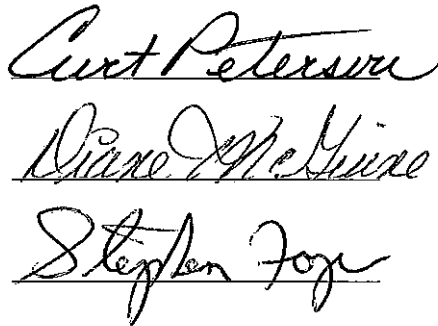 Curt Peterson
Diane J McGuire
Stephen